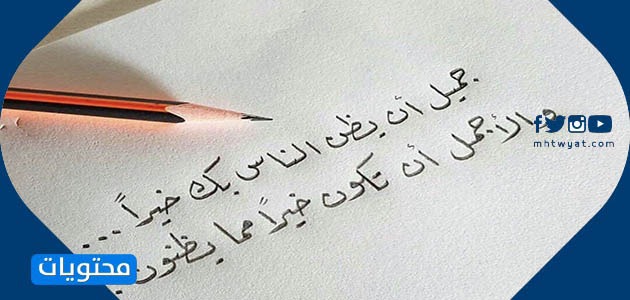 جميل أن يظن الناس بك خيراً...
والأجمل أن تكون خيراً مما يظنون.
mhtwyat.com
محتويات